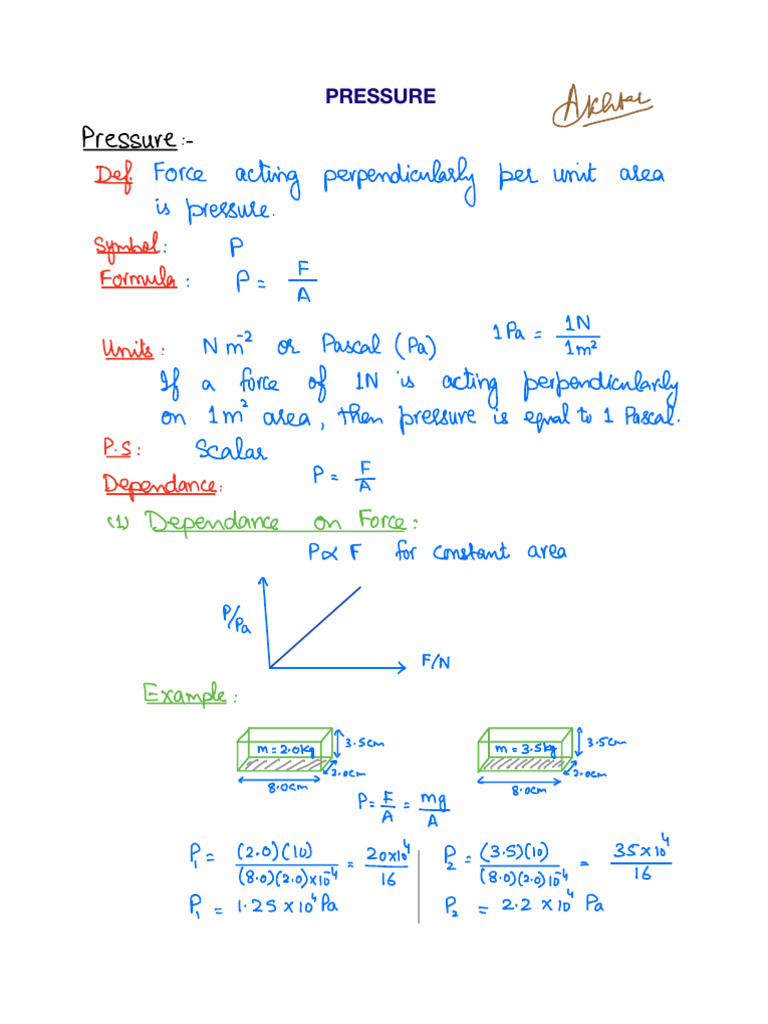 PRESSURE
Akhtar
Pressure :-
Def. Force acting perpendicularly per unit area
is pressure.
Symbol : P
Formula : P = F/A
Units : N m⁻² or Pascal (Pa) 1 Pa = 1N/1m²
If a force of 1N is acting perpendicularly
on 1 m² area, then pressure is equal to 1 Pascal.
P.S : Scalar
Dependance : P = F/A
(1) Dependance on Force :
P ∝ F for constant area
P/Pa
F/N
Example :
m = 2.0kg 3.5cm 2.0cm 8.0cm
m = 3.5kg 3.5cm 2.0cm 8.0cm
P = F/A = mg/A
P₁ = (2.0)(10)/(8.0)(2.0)×10⁻⁴ = 20×10⁴/16
P₂ = (3.5)(10)/(8.0)(2.0)10⁻⁴ = 35×10⁴/16
P₁ = 1.25 ×10⁴ Pa
P₂ = 2.2 ×10⁴ Pa